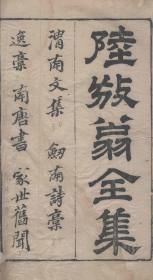 陸放翁全集
渭南文集 劒南詩稾
逸稾 南唐書 家世舊聞